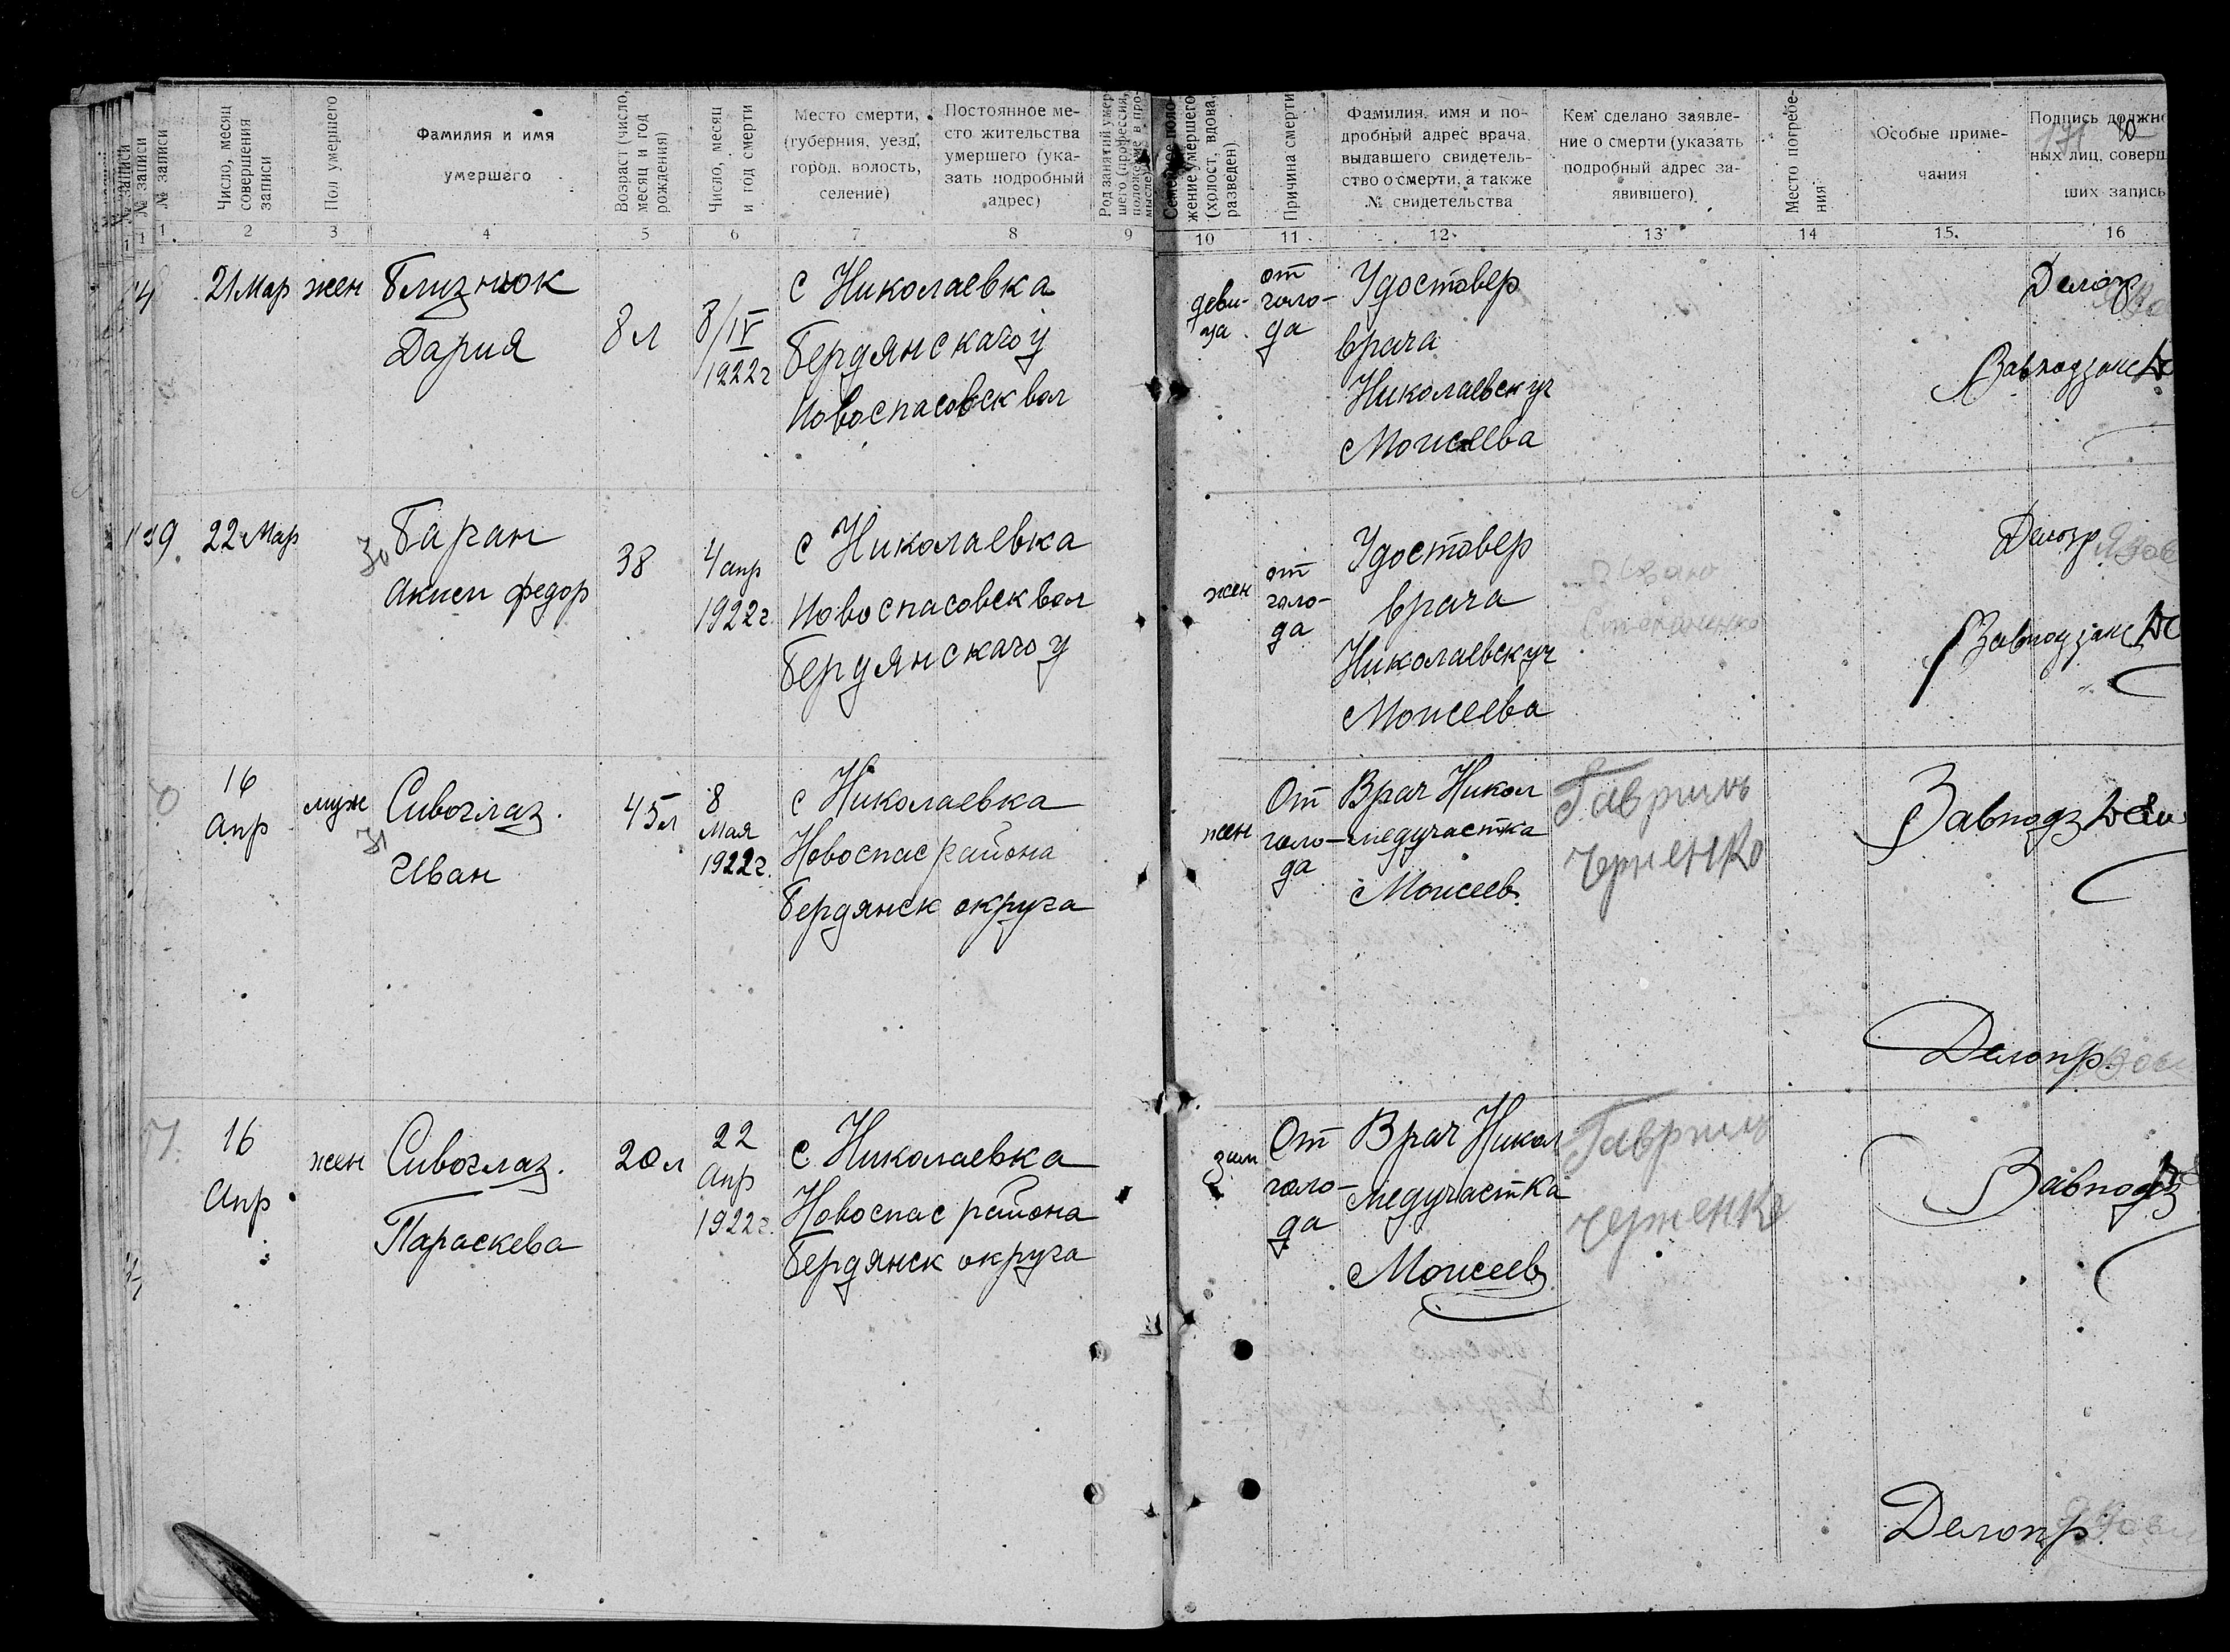 № записи
№ записи
№ записи
Число, месяц
совершения
записи
Пол умершего
Фамилия и имя
умершего
Возраст (число,
месяц и год
рождения)
Число, месяц
и год смерти
Место смерти,
(губерния, уезд,
город, волость,
селение)
Постоянное ме-
сто жительства
умершего (ука-
зать подробный
адрес)
Род занятий умер-
шего (профессия,
положение в про-
Семейное поло-
жение умершего
(холост, вдова,
разведен)
Причина смерти
Фамилия, имя и по-
дробный адрес врача,
выдавшего свидетель-
ство о смерти, а также
№ свидетельства
Кем сделано заявле-
ние о смерти (указать
подробный адрес за-
явившего)
Место погребе-
ния
Особые приме-
чания
Подпись должно
ных лиц, соверш
ших запись
1 1 1 2 3 4 5 6 7 8 9 10 11 12 13 14 15 16
21 Мар
жен
Близнюк
Дария
8 л
8/IV
1922 г
с Николаевка
Бердянскаго у
Новоспасовск вол
деви-
ца
от
голо-
да
Удостовер
врача
Николаевск уч
Моисеева
Делопр
Завподзагс
139
22 Мар
30
Баран
Акией федор
38
4 апр
1922 г.
с Николаевка
Новоспасовск вол
Бердянскаго у
жен
от
голо-
да
Удостовер
врача
Николаевск уч
Моисеева
Степаненко
Делопр
Завподзагс
16
Апр
муж
31
Сивоглаз.
Иван
45 л
8
Мая
1922 г.
с Николаевка
Новоспас района
Бердянск округа
жен
От
голо-
да
Врач Никол
медучастка
Моисеев
Гавриил
Черненко
Завподз
Делопр.
16
Апр
жен
Сивоглаз.
Параскева
20 л
22
Апр
1922 г.
с. Николаевка
Новоспас района
Бердянск округа
зам
От
голо-
да
Врач Никол
медучастка
Моисеев
Гавриил
Черненко
Завподз
Делопр.